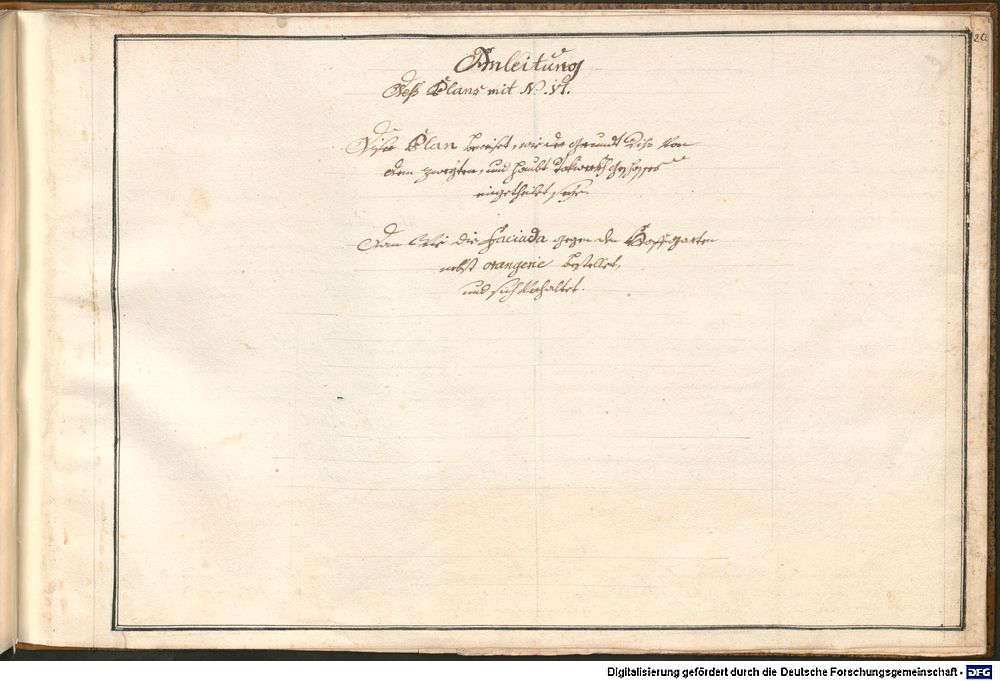 20
Anleitung
deß Plans mit No. VI.
Diser Plan weiset, wie der grundt Riß von
dem zweyten, und haubt
eingetheilet seye.
Dan Wie die Faciada gegen den Hoffgarten
nebst orangerie bestellet,
und sich Verhaltet.
Digitalisierung gefördert durch die Deutsche Forschungsgemeinschaft - DFG